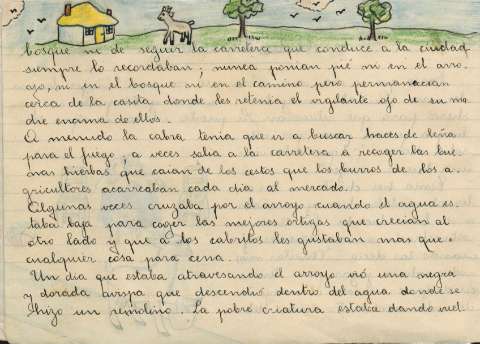 bosque ni de seguir la carretera que conduce a la ciudad
siempre lo recordaban; nunca ponian pié ni en el arro-
ojo, ni en el bosque ni en el camino pero permanacian
cerca de la casita donde les retenia el vigilante ojo de su ma
dre encima de ellos.
A menudo la cabra tenia que ir a buscar haces de leña
para el fuego, a veces salia a la carretera a recoger las bue
nas hierbas que caian de los cestos que los burros de los a-
gricultores acarreaban cada dia al mercado.
Algunas veces cruzaba por el arroyo cuando el agua es-
taba baja para coger las mejores ortigas que crecian al
otro lado y que a los cabritos les gustaban mas que
cualquier cosa para cena.
Un dia que estaba atravesando el arroyo vió una negra
y dorada avispa que descendió dentro del agua donde se
hizo un remolino. La pobre criatura estaba dando vuel